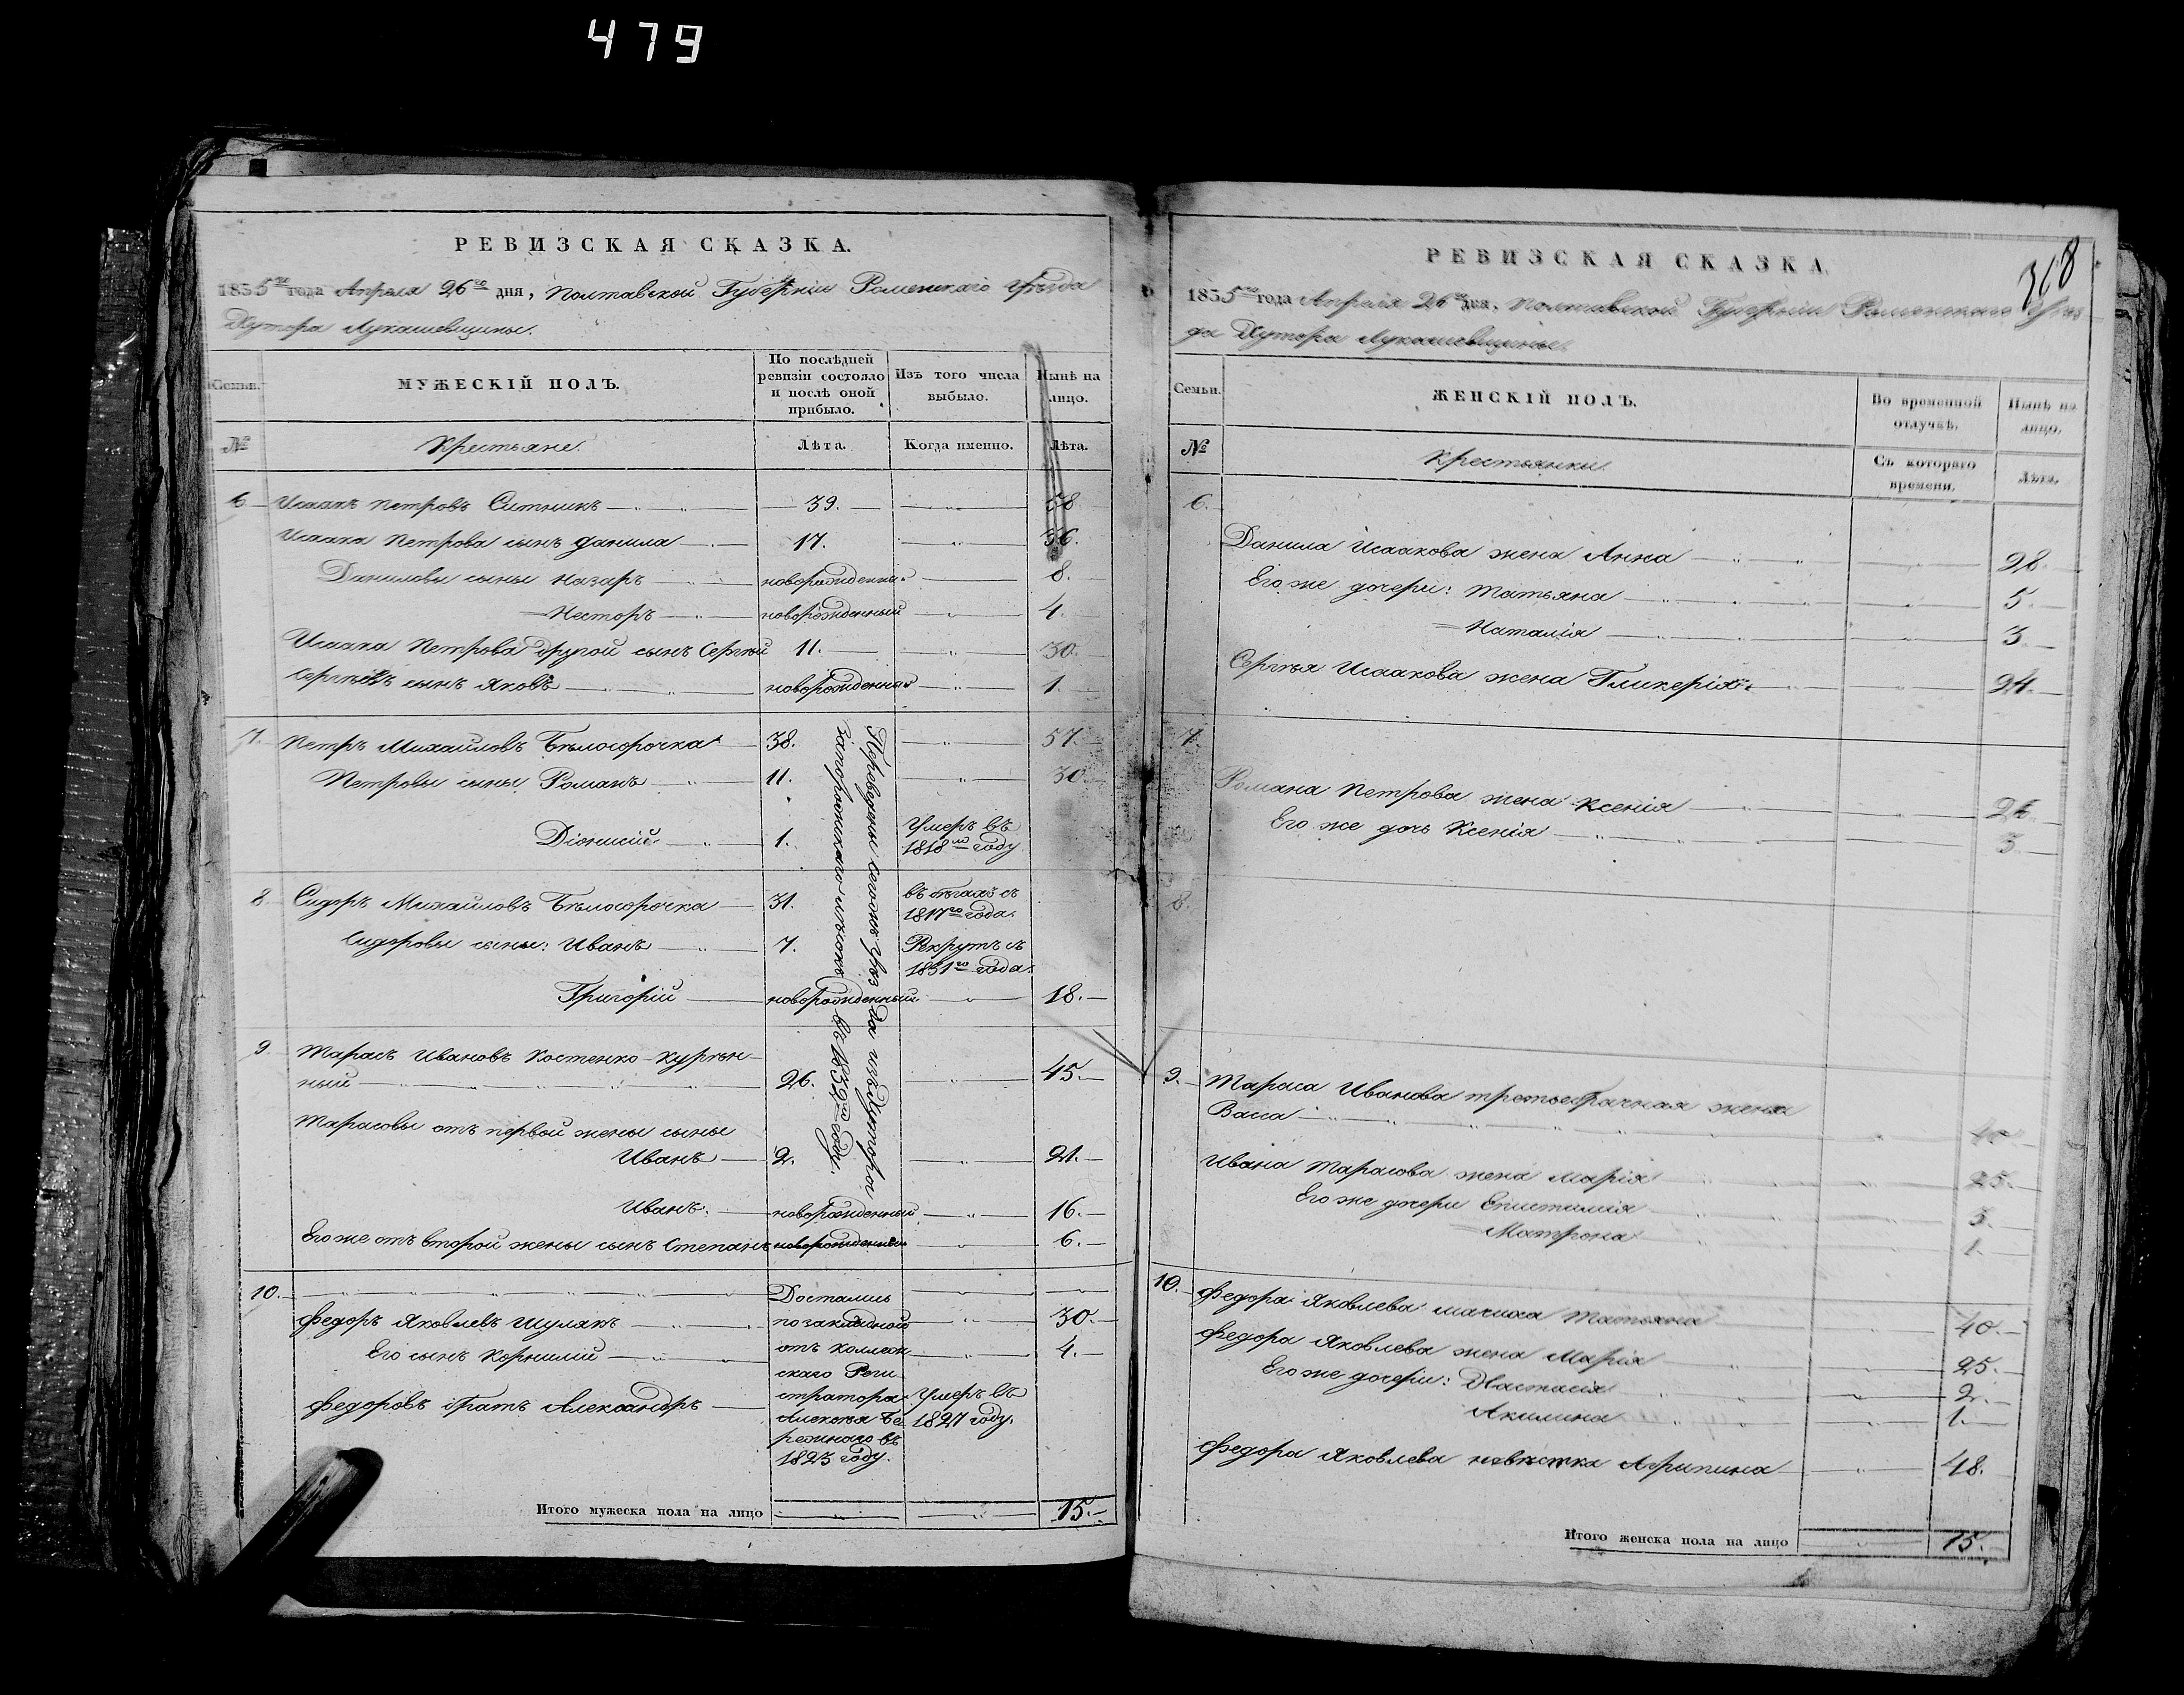 479
РЕВИЗСКАЯ СКАЗКА.
1835го года Апреля 26го дня, Полтавской Губерніи Роменскаго Уѣзда
Хутора Лукашевщины.
Семьи.
МУЖЕСКІЙ ПОЛЪ.
По послѣдней ревизіи состояло и послѣ оной прибыло.
Изъ того числа выбыло.
Нынѣ на лицо.
№
Крестьяне.
Лѣта.
Когда именно.
Лѣта.
6 Исаакъ Петровъ Ситникъ 39. 58
Исаака Петрова сынъ Данила 17. 36.
Даниловы сыны Назаръ новорожденный 8.
Несторъ новорожденный 4.
Исаака Петрова другой сынъ Сергѣй 11. 30.
Сергѣевъ сынъ Яковъ новорожденный 1.
7. Петръ Михайловъ Бѣлосорочка 38. 57.
Петровы сыны Романъ 11. 30
Діонисій 1. Умеръ въ 1818мъ году
8. Сидоръ Михайловъ Бѣлосорочка 31. въ бѣгахъ съ 1817го года.
Сидоровы сыны: Иванъ 7. Рекрутъ съ 1831го года.
Григорій новорожденный 18.
Переведены сегожъ уѣзда изъ Хутора
въ 1832мъ году.
9. Тарасъ Ивановъ Костенко-Кургѣн-
ный 26. 45.
Тарасовы отъ первой жены сыны
Иванъ 2. 21.
Иванъ. новорожденный 16.
Его же отъ второй жены сынъ Степанъ новорожденный 6.
10. Достались
Федоръ Яковлевъ Шулякъ по закладной 30.
Его сынъ Корнилій отъ Коллеж 4.
скаго Реги
Федоровъ братъ Александръ стратора Умеръ въ
Алексѣя Бе 1827 году.
режнаго въ
1823 году.
Итого мужеска пола на лицо 15.
368
РЕВИЗСКАЯ СКАЗКА.
1835го года Апреля 26го дня, Полтавской Губерніи Роменскаго Уѣз
да Хутора Лукашевщины.
Семьи.
ЖЕНСКІЙ ПОЛЪ.
Во временной отлучкѣ.
Нынѣ на лицо.
№
Крестьянки.
Съ котораго времени.
Лѣта.
6.
Данила Исаакова жена Анна 28.
Его же дочери: Татьяна 5.
Наталія 3.
Сергѣя Исаакова жена Гликерія 24.
7.
Романа Петрова жена Ксенія
Его же дочь Ксенія 3.
8.
9. Тараса Иванова третьебрачная жена
Васса 40
Ивана Тарасова жена Марія 25.
Его же дочери Епистимія 3.
Матрона 1.
10. Федора Яковлева мачиха Татьяна 40.
Федора Яковлева жена Марія 25.
Его же дочери: Настасія 2.
Акилина 1.
Федора Яковлева невѣстка Агрипина 48.
Итого женска пола на лицо 15.